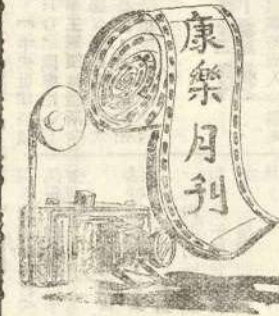 康樂月刊